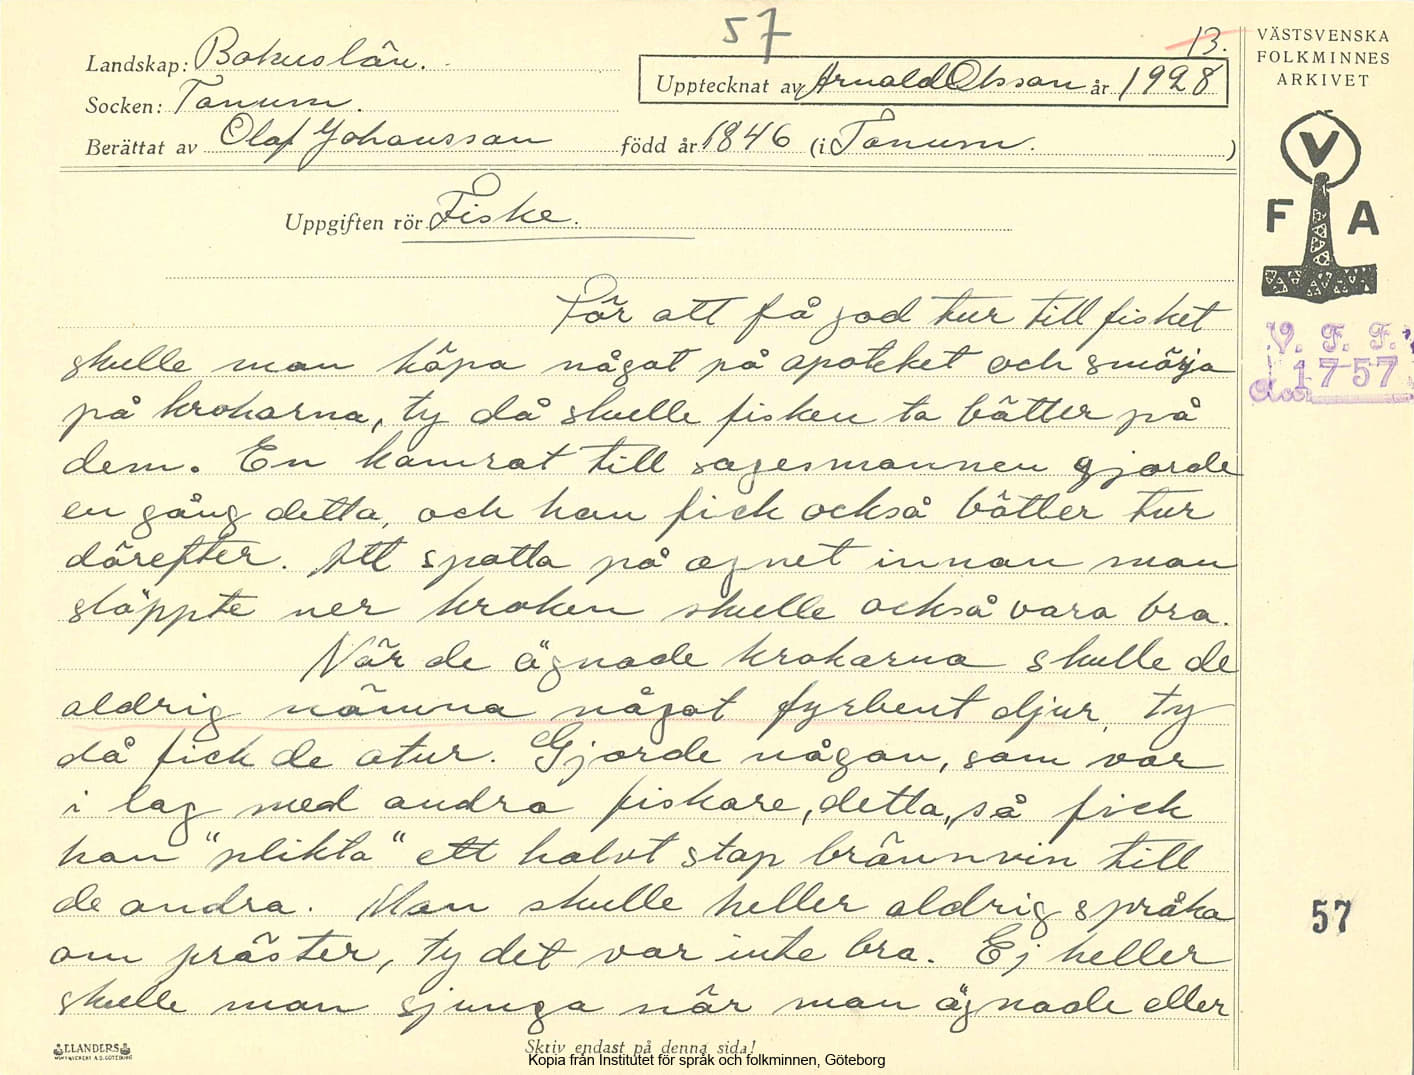 57
13.
Landskap: Bohuslän.
Upptecknat av Arnold Olsson år 1928
Socken: Tanum.
Berättat av Olaf Johansson född år 1846 (i Tanum. )
Uppgiften rör Fiske.
För att få god tur till fisket
skulle man köpa något på apoteket och smörja
på krokarna, ty då skulle fisken ta bätter på
dem. En kamrat till sagesmannen gjorde
en gång detta, och han fick också bätter tur
därefter. Att spotta på agnet innan man
släppte ner kroken skulle också vara bra.
När de ägnade krokarna skulle de
aldrig nämna något fyrbent djur, ty
då fick de otur. Gjorde någon, som var
i lag med andra fiskare, detta, så fick
han "plikta" ett halvt stop brännvin till
de andra. Man skulle heller aldrig språka
om präster, ty det var inte bra. Ej heller
skulle man sjunga när man ägnade eller
ELANDERS
Skriv endast på denna sida!
Kopia från Institutet för språk och folkminnen, Göteborg
VÄSTSVENSKA
FOLKMINNES
ARKIVET
V
F A
V. F. F.
1757
57